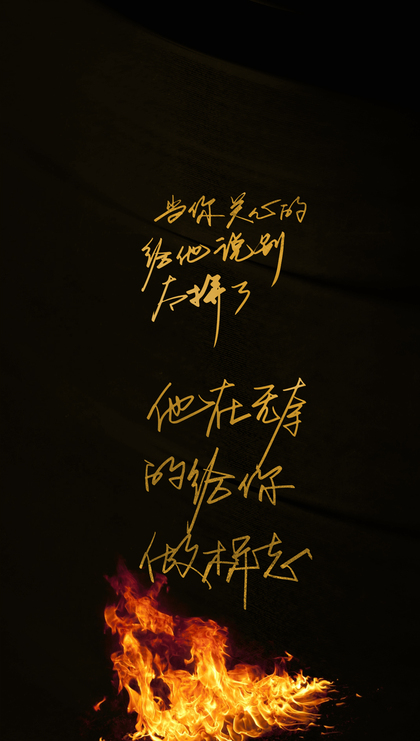 当你关心的
给他说别
太拼了
他在无
的给你
做